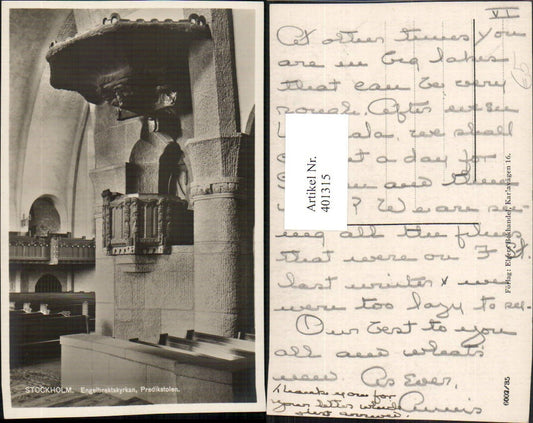 STOCKHOLM. Engelbrektskyrkan, Predikstolen.
VI
At other times you
are in big lakes
that can be very
rough. After we
we shall
a day for
and
? We are see-
ing all the films
that were on
last winter & we
were too lazy to see.
Our best to you
all and what's
new As Ever,
Annis
Thanks you for
your letter which
just arrived.
Artikel Nr.
401315
Förlag: Bokhandel, Karlavägen 16.
6003/85